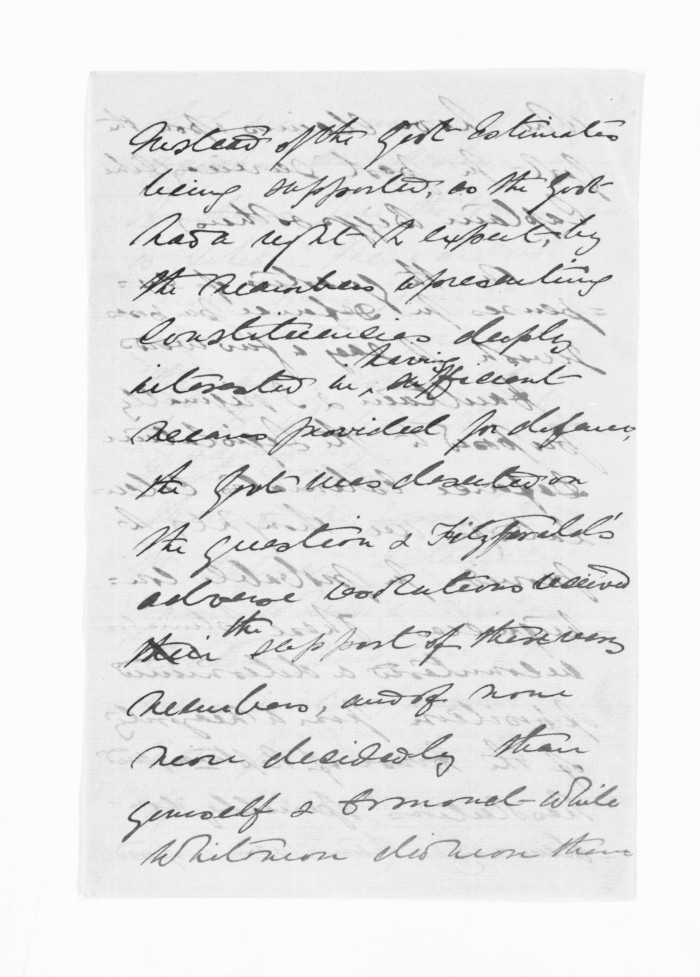 Instead of the Govt Estimates
being supported, as the Govt
had a right to expect, by
the Members representing
Constituencies deeply
interested in, having sufficient
means provided for defence,
the Govt was deserted on
the question & Fitzgerald's
adverse resolutions received
their the support of these very
members, and of none
more decidedly than
yourself & Ormond - While
Whitmore did more than